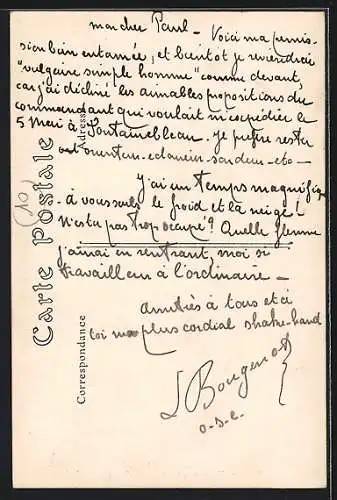 mon cher Paul - Voici ma permis-
sion bien entamée, et bientôt je reviendrai
"vulgaire simple homme" comme devant,
car j'ai déchiré les aimables propositions du
commandant qui voulait m'expédier le
5 Mai à Fontainebleau. Je préfère rester
J'ai un temps magnifique
à vous le froid et la neige!
N'es tu pas trop occupé? Quelle flemme
j'aurai en rentrant, moi si
travailleur à l'ordinaire -
amitiés à tous et à
toi mon plus cordial shake-hand
L Bougenot
o.s.c.
Carte Postale
Correspondance
Adresse